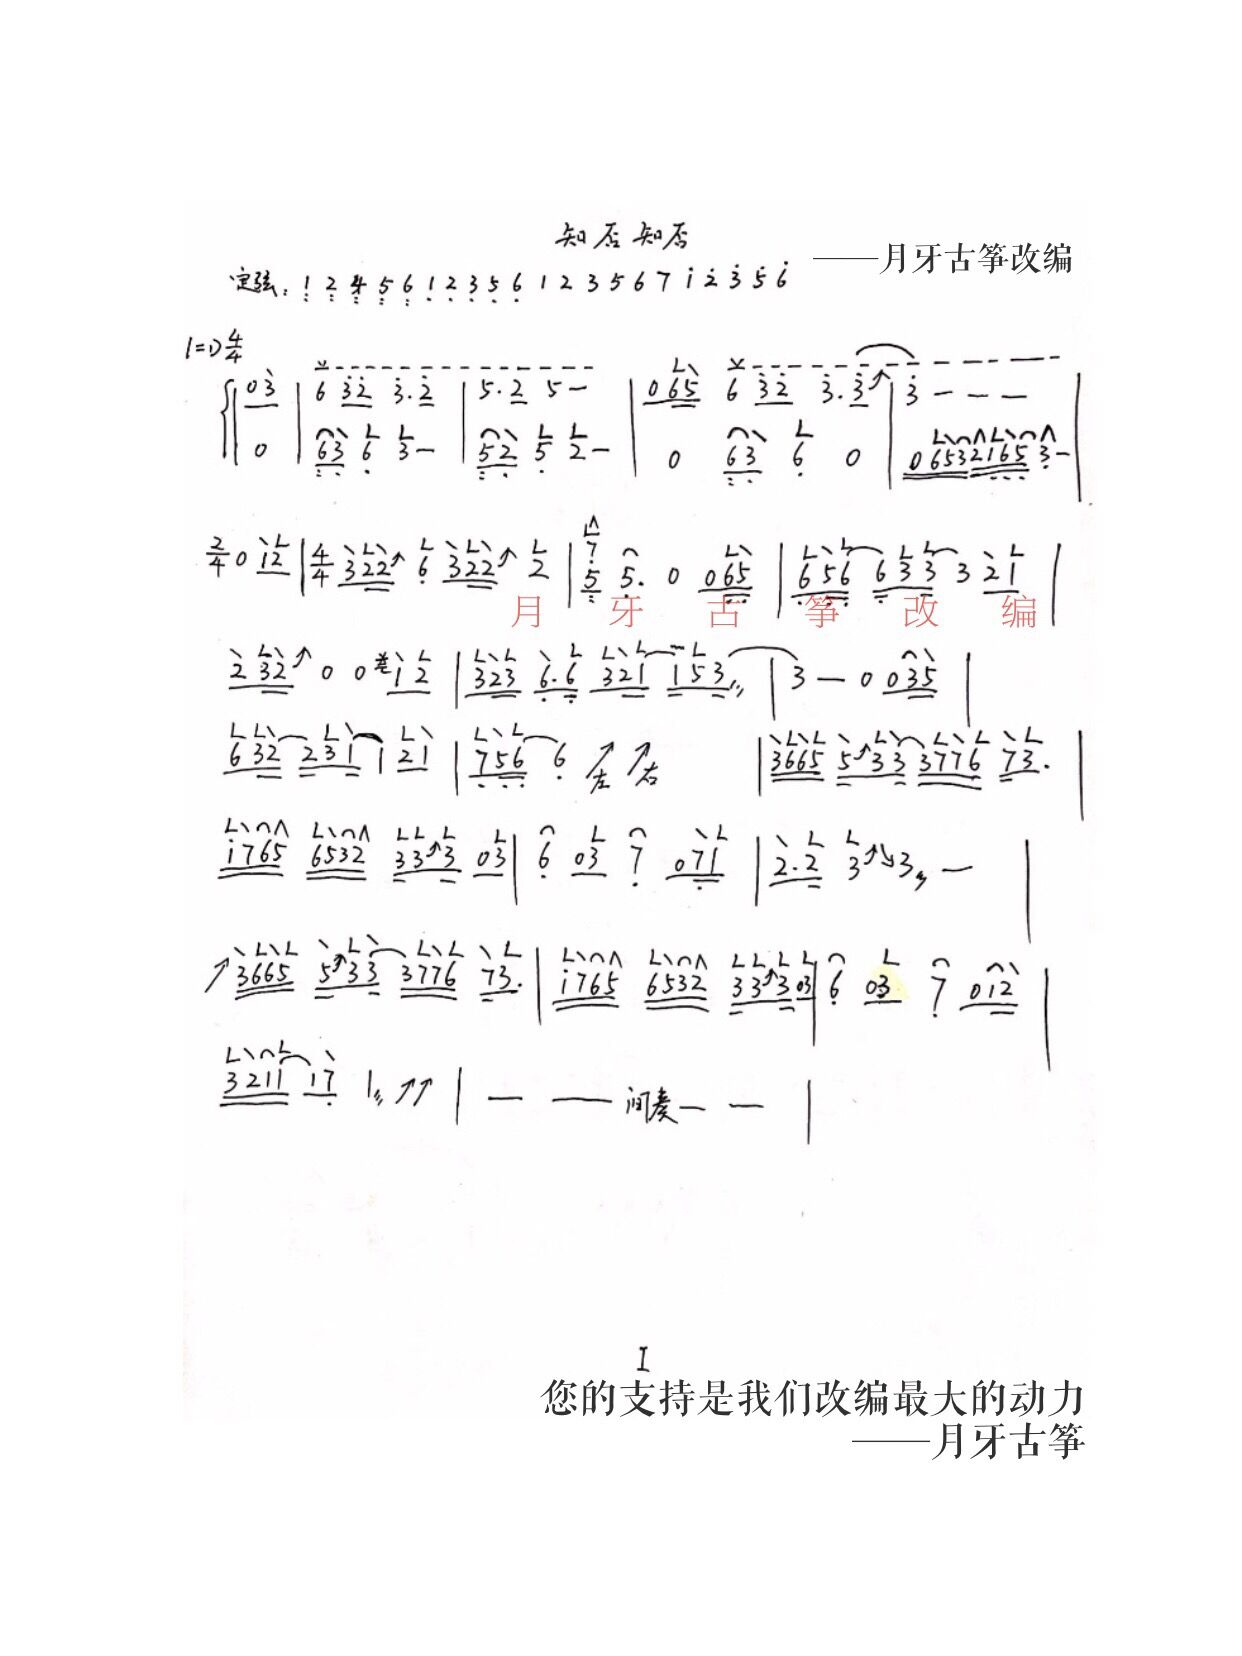 知否知否
——月牙古筝改编
定弦: 1 2 4 5 6 1 2 3 5 6 1 2 3 5 6 7 1 2 3 5 6
1=D 4/4
03 | 6 32 3.2 | 5.2 5— | 065 6 32 3.3 | 3 — — —
0 | 63 6 3— | 52 5 2— | 0 63 6 0 | 06532165 3—
2/4 0 12 | 4/4 322 6 322 2 | 7 5 5. 0 065 | 656 633 3 21 |
月牙古筝改编
2 32 0 0 12 | 323 6.6 321 153 | 3 — 0 035 |
632 231 1 21 | 756 6 左 右 | 3665 533 3776 73. |
1765 6532 333 03 | 6 03 7 071 | 2.2 3 3 — |
3665 533 3776 73. | 1765 6532 333 03 | 6 03 7 012 |
3211 17 1 | — — 间奏 — — |
I
您的支持是我们改编最大的动力
——月牙古筝